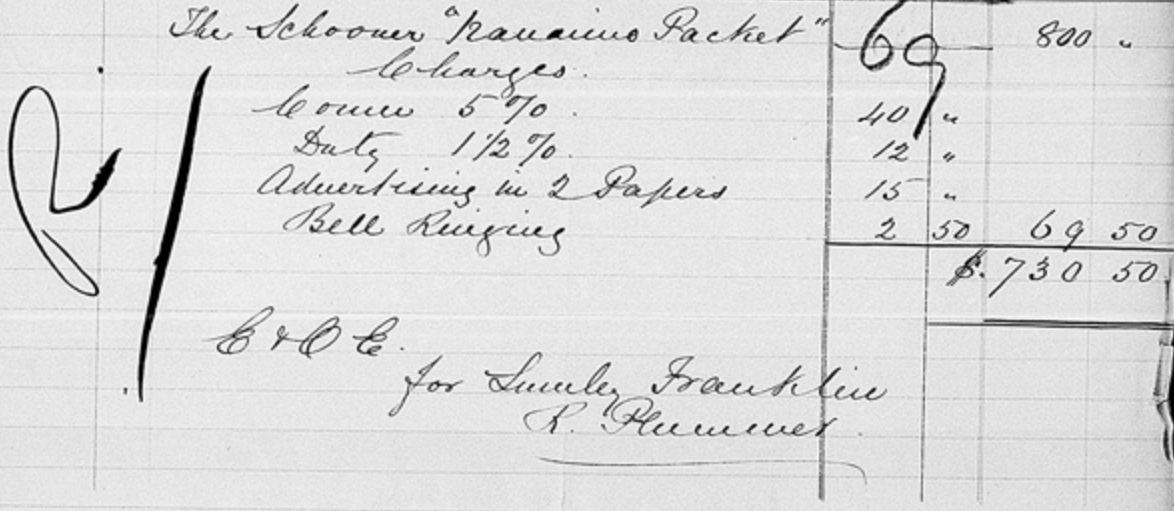 The Schooner "Nanaimo Packet" 69 800 "
Charges.
Comm 5% . 40 "
Duty 1 1/2 %. 12 "
Advertising in 2 Papers 15 "
Bell Ringing 2 50 69 50
$. 730 50
E & O E.
for Lumley Franklin
R. Plummer